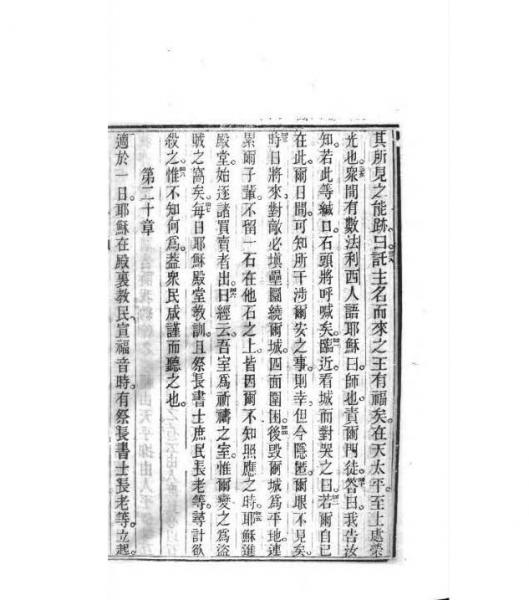 其所見之能跡曰託主名而來之王有福矣在天太平至上處榮
光也衆間有數法利西人語耶穌曰師也責爾門徒答曰我告汝
知若此等緘口石頭將呼喊矣臨近看城而對哭之曰若爾自已
在此爾日間可知所干涉爾安之事則幸但今隱匿爾眼不見矣
時日將來對敵必塡壘圜繞爾城四面圍困後毀爾城爲平地連
累爾子輩不留一石在他石之上皆因爾不知照應之時耶穌進
殿堂始逐諸買賣者出曰經云吾室爲祈禱之室惟爾變之爲盜
賊之窩矣每日耶穌殿堂敎訓且祭長書士庶民長老等尋計欲
殺之惟不知何爲葢衆民咸謹而聽之也
第二十章
適於一日耶穌在殿裏敎民宣福音時有祭長書士長老等立起